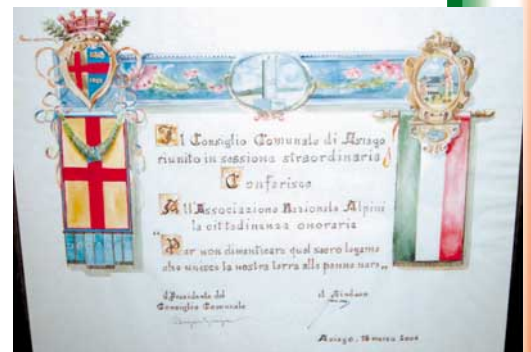 Il Consiglio Comunale di Asiago
riunito in sessione straordinaria
Conferisce
All'Associazione Nazionale Alpini
la cittadinanza onoraria
"Per non dimenticare quel sacro legame
che unisce la nostra terra alle penne nere„
il Presidente del
Consiglio Comunale
il Sindaco
Asiago, marzo